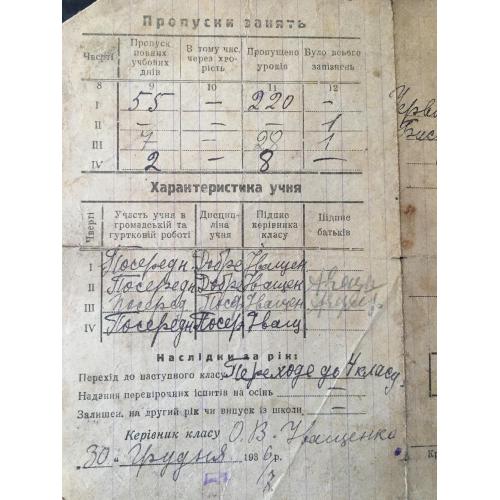 Пропуски занять
Чверті | Пропуск повних учбових днів | В тому час. через хворість | Пропущено уроків | Було всього запізнень
8 | 9 | 10 | 11 | 12
I | 55 | — | 220 | —
II | — | — | — | 1
III | 7 | — | 28 | 1
IV | 2 | — | 8 | —
Характеристика учня
Чверті | Участь учня в громадській та гуртковій роботі | Дисципліна учня | Підпис керівника класу | Підпис батьків
I | Посередн | Добре | Іващен
II | Посередн | Добре | Іващен
III | Посеред | Посер | Іващен
IV | Посередн | Посер | Іващ.
Наслідки за рік:
Перехід до наступного класу Переходе до 4 класу.
Надання перевірочних іспитів на осінь —
Залишен. на другий рік чи випуск із школи —
Керівник класу О. В. Іващенко
„30" Грудня 1936 р.
7